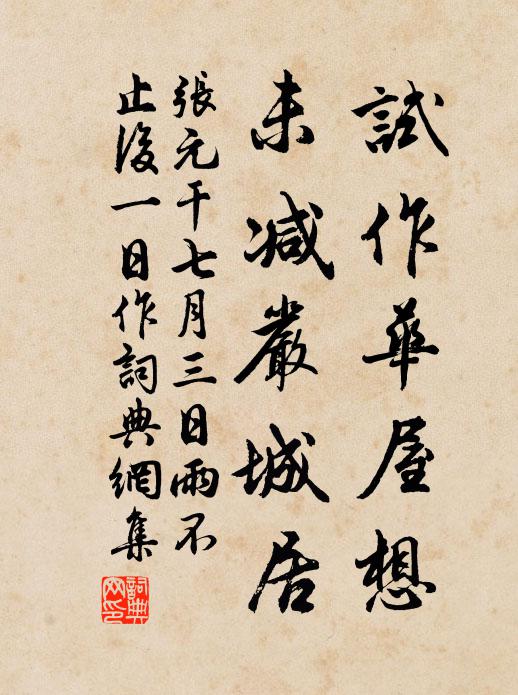 試作華屋想
未減嚴城居
張元干七月三日雨不
止後一日作詞典網集
詞典
网印